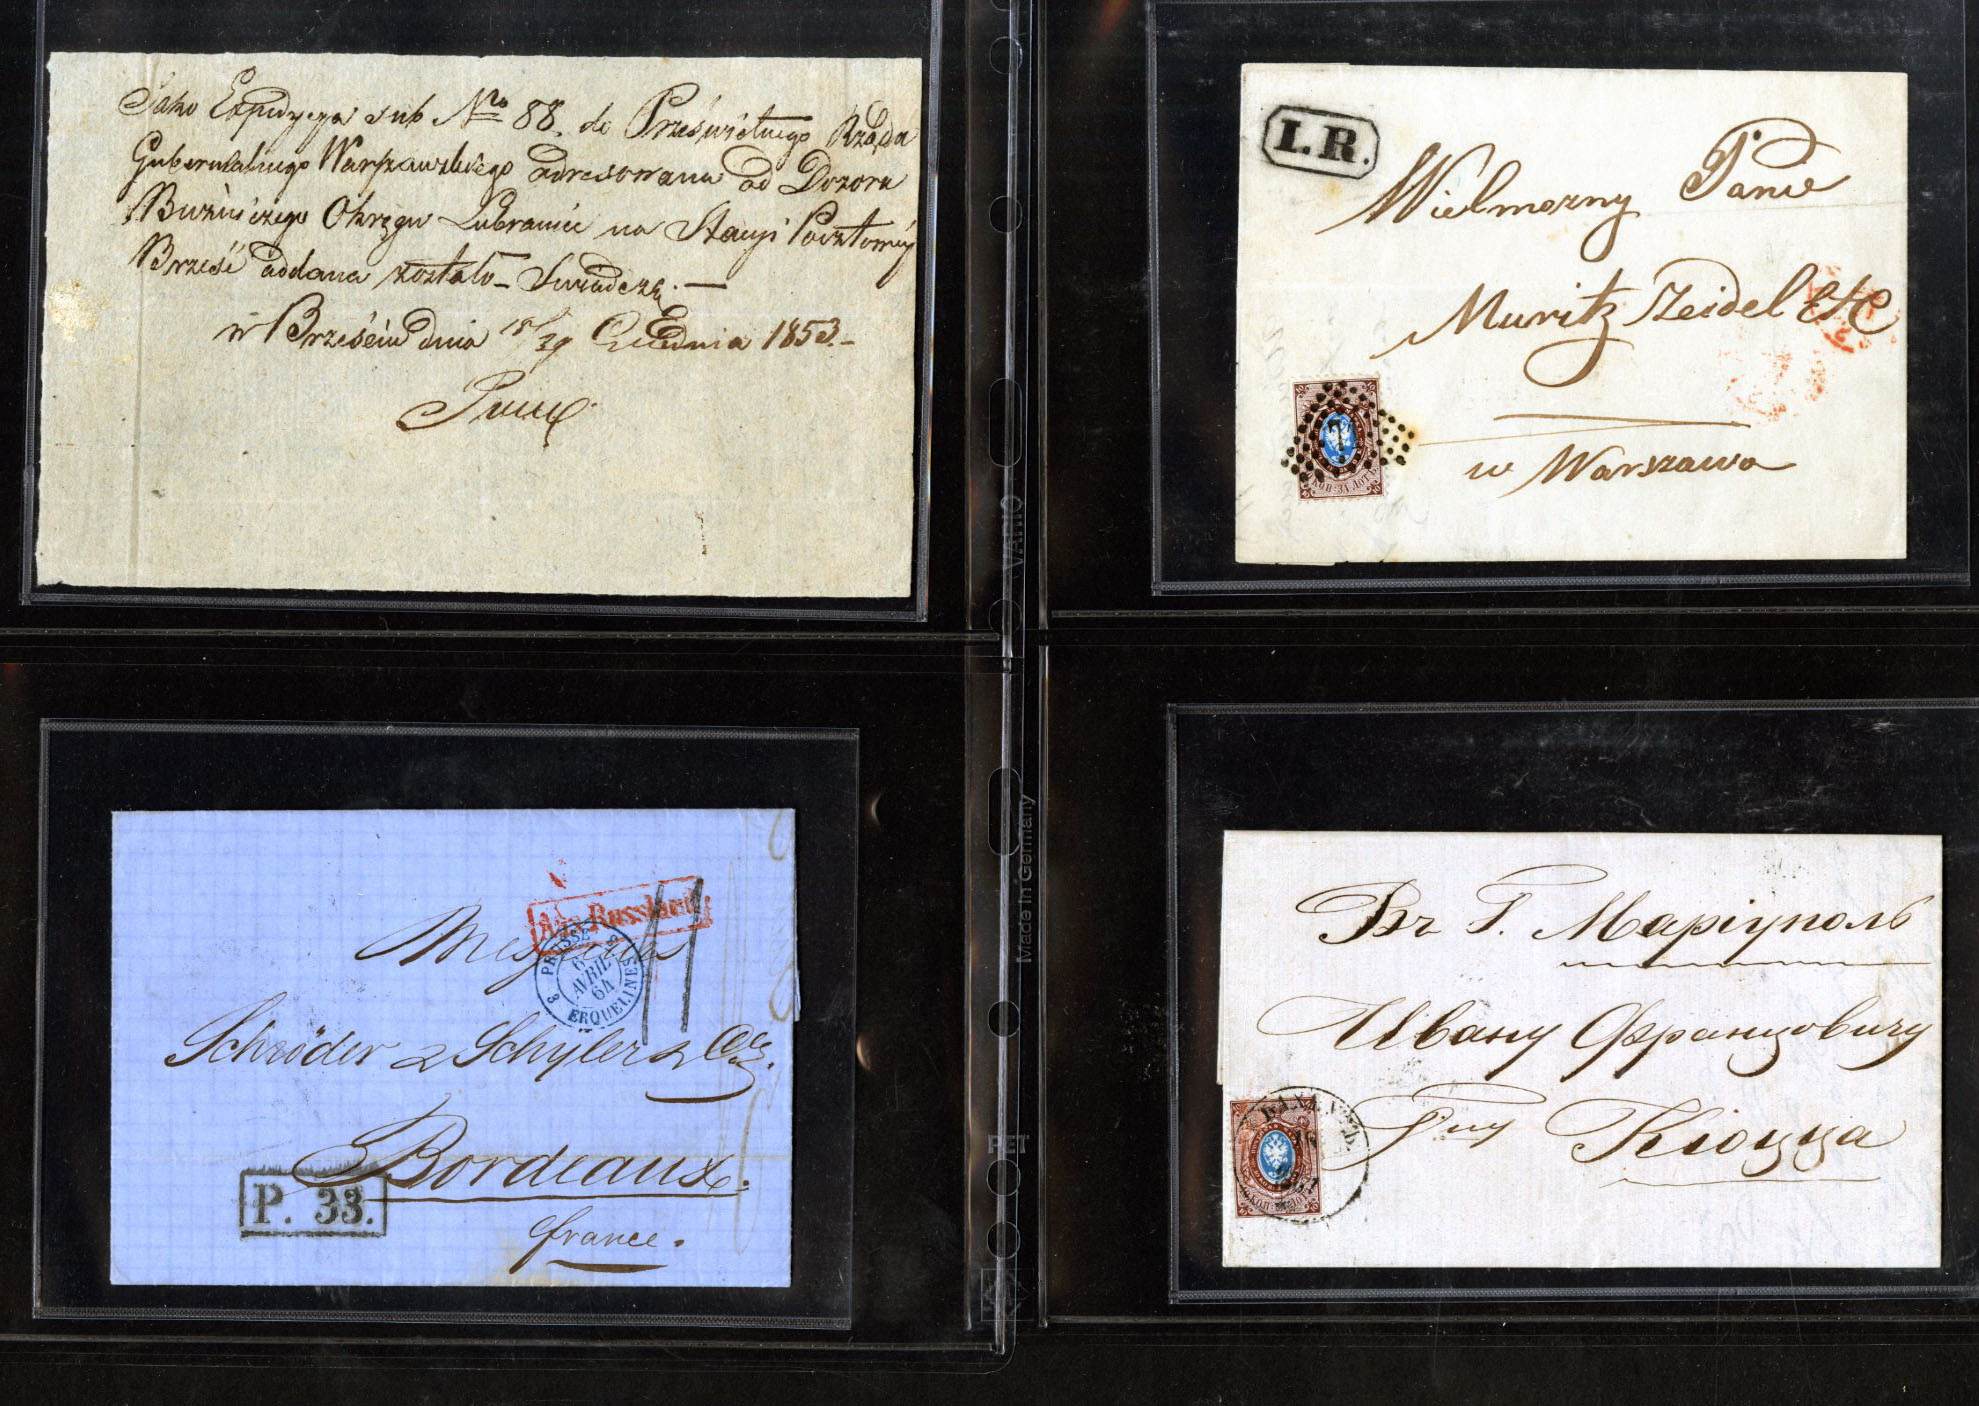 Jako Expedycya sub No 88. do Prześwietnego Rządu
Gubernialnego Warszawskiego adresowana od Dozoru
Bużniczego Okręgu Lubraniec na Stacyi Pocztowéy
Brześć oddana została – Świadczę. —
w Brześciu dnia 18/30 Grudnia 1853. –
I.R.
Wielmożny Panie
Muritz Zeidel & C
w Warszawa
КОП: ЗА ЛОТ
VARIO
Made in Germany
PET
Aus Russland
Messieurs
PRUSSE
6
AVRIL
64
ERQUELINES
Schröder & Schyler & Cie
Bordeaux.
P. 33.
France.
Въ Г. Маріуполь
Ивану Францовичу
Гну Кіоцца
КОП: ЗА ЛОТ